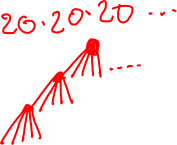 20·20·20 ...